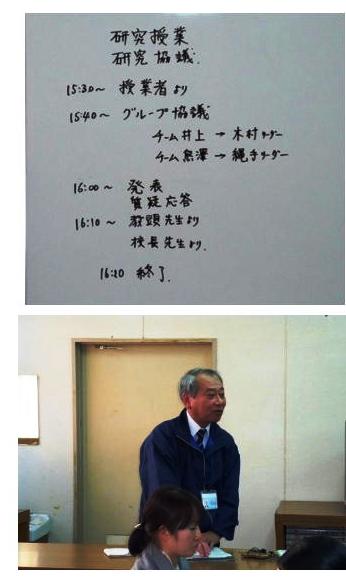 研究授業
研究協議
15:30～ 授業者より
15:40～ グループ協議
チーム井上 → 木村リーダー
チーム魚澤 → 縄手リーダー
16:00～ 発表
質疑応答
16:10～ 教頭先生より
校長先生より
16:20 終了